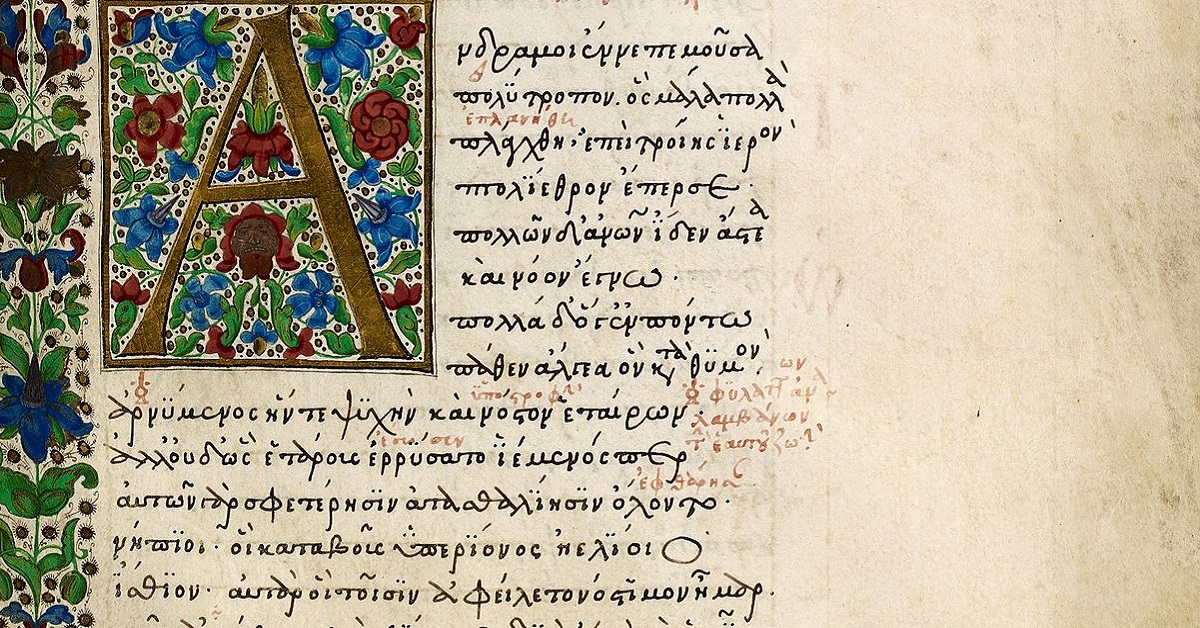 Ἄνδρα μοι ἔννεπε μοῦσα
πολύτροπον. ὃς μάλα πολλὰ
ἐπλανήθη
πλάγχθη· ἐπεὶ τροίης ἱερὸν
πτολίεθρον ἔπερσε·
πολλῶν δ' ἀνθρώπων ἴδεν ἄστεα
καὶ νόον ἔγνω·
πολλὰ δ' ὅγ' ἐν πόντω
πάθεν ἄλγεα ὃν κατὰ θυμόν,
ὑποστροφὴν
φυλάττων
ἀρνύμενος ἥν τε ψυχὴν καὶ νόστον ἑταίρων·
λαμβάνων
ἀλλ' οὐδ' ὣς ἑτάρους ἐρρύσατο ἱέμενός περ
ἐφθάρησαν
αὐτῶν γὰρ σφετέρησιν ἀτασθαλίησιν ὄλοντο·
νήπιοι· οἳ κατὰ βοῦς ὑπερίονος ἠελίοιο
ἤσθιον· αὐτὰρ ὁ τοῖσιν ἀφείλετο νόστιμον ἦμαρ.